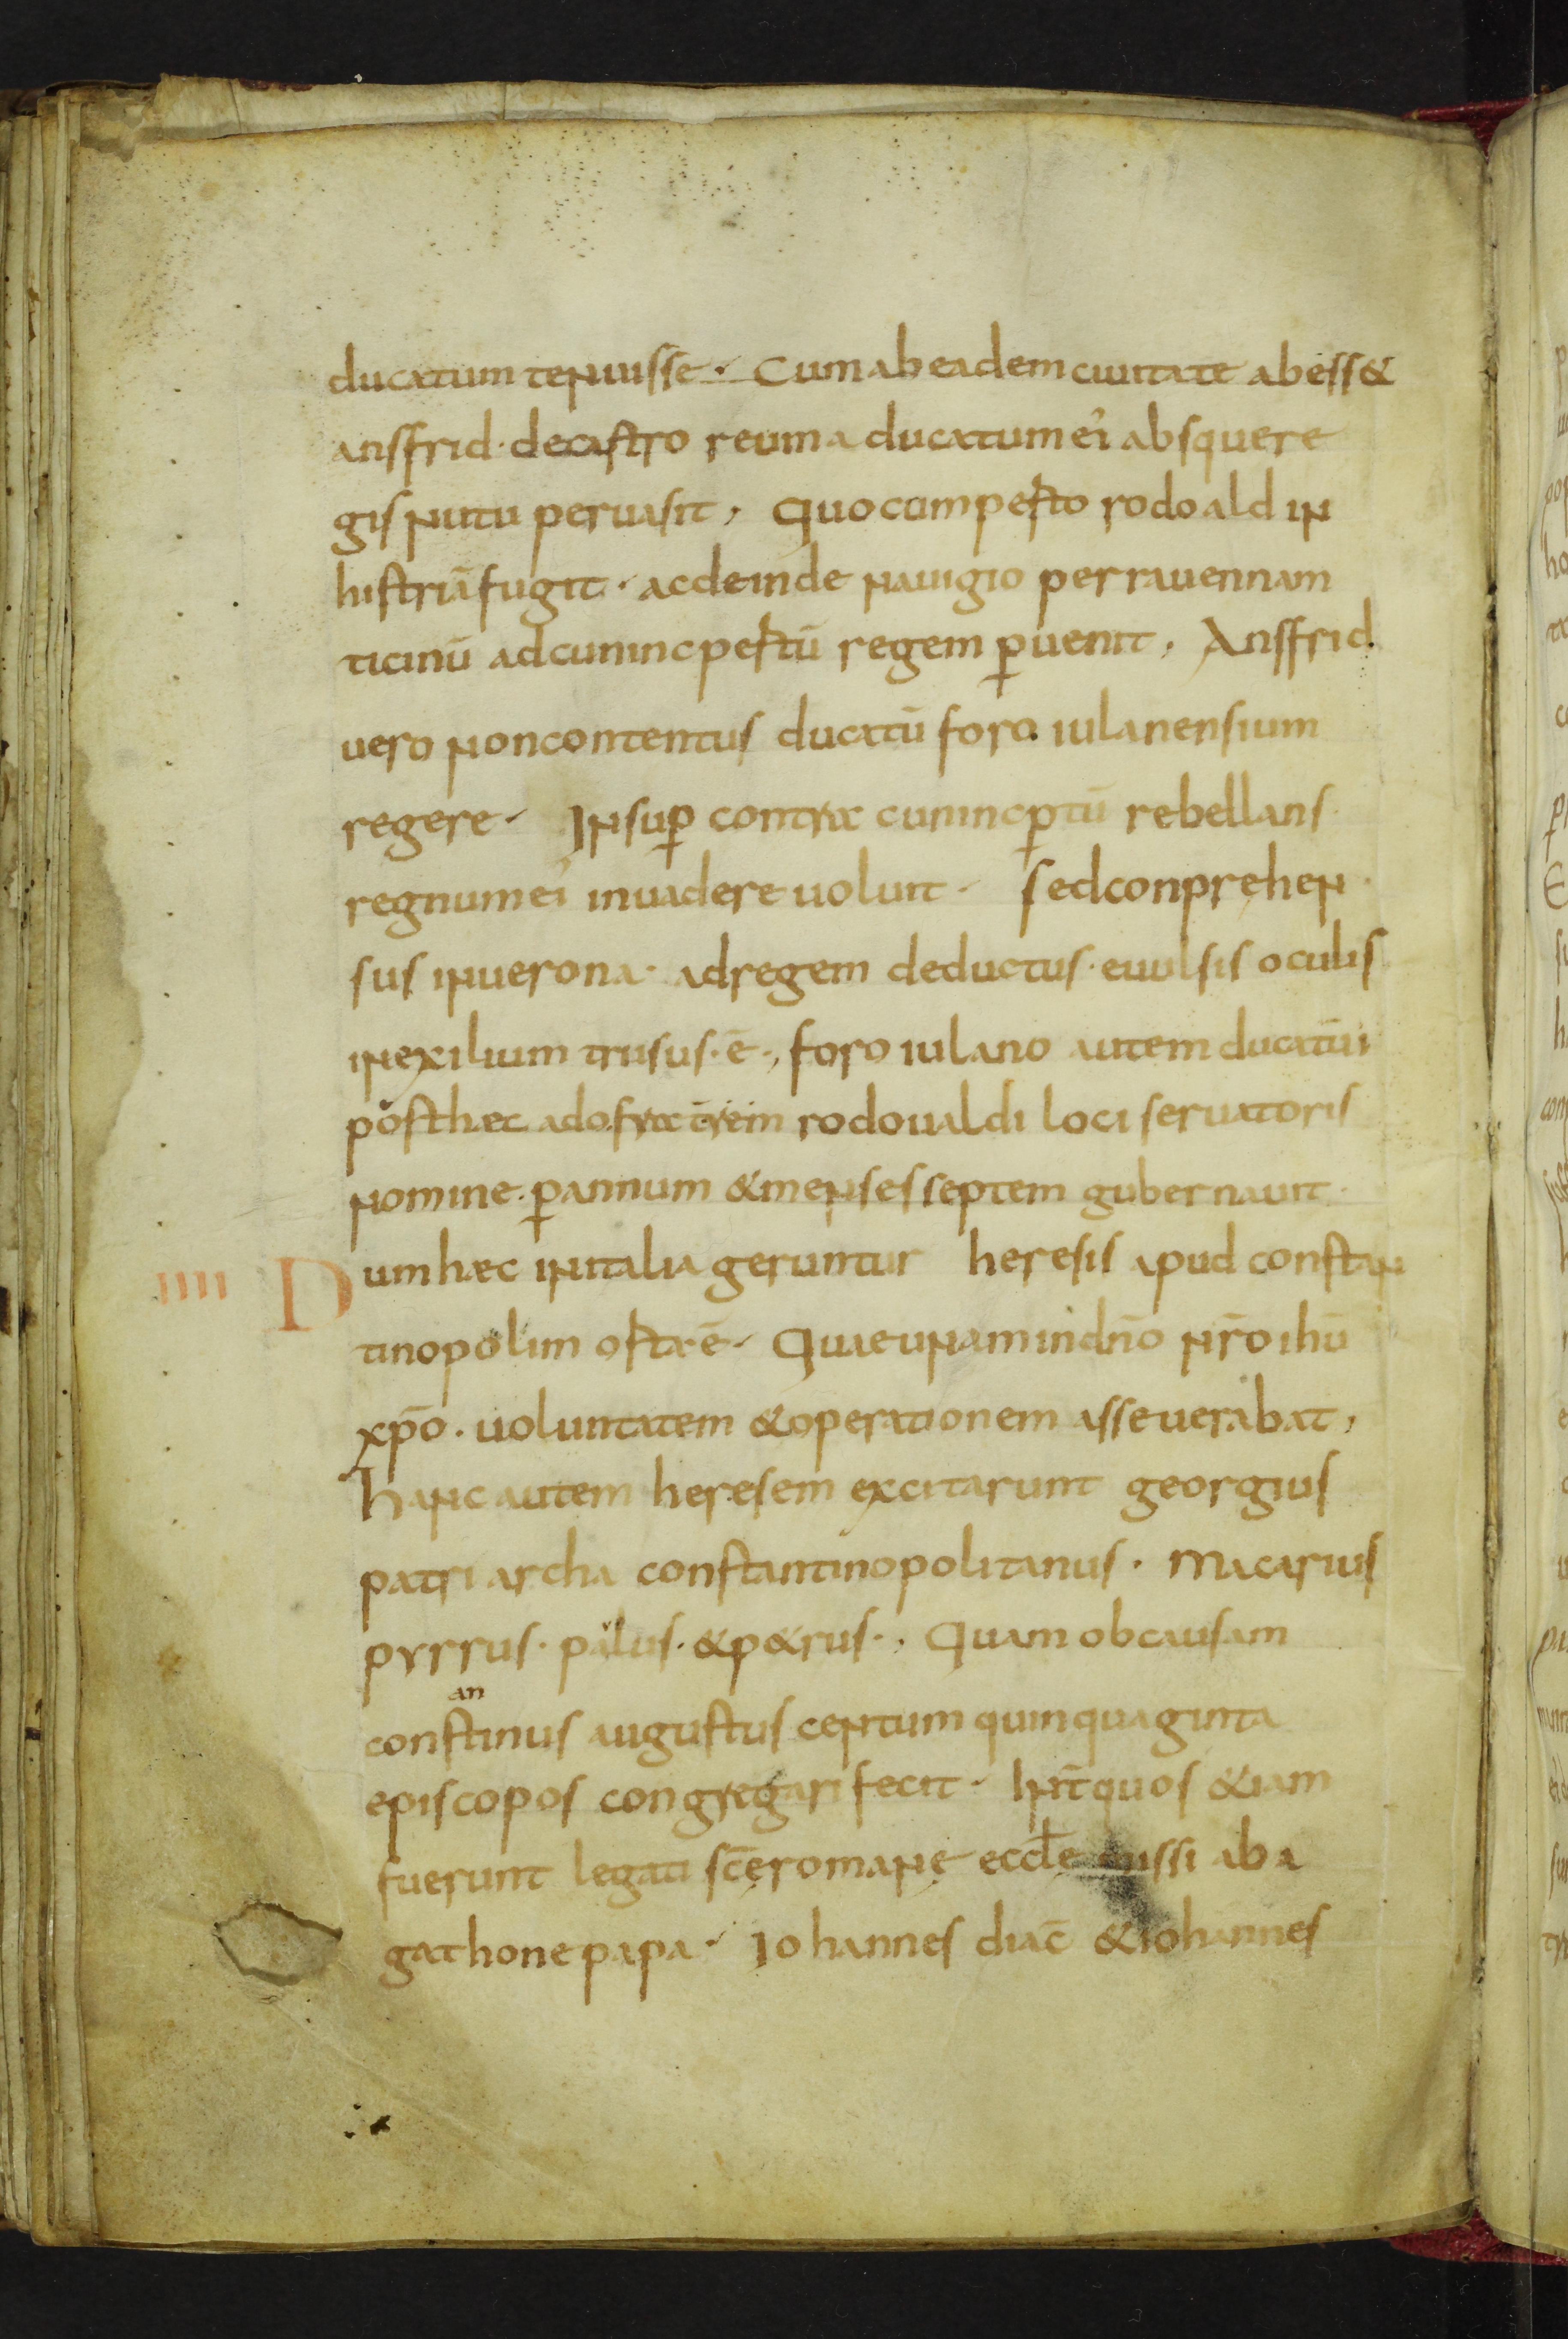 ducatum tenuisse. Cum ab eadem ciuitate abess&
ansfrid. de castro reuma ducatum ei absque re
gis nutu peruasit, quo cumpesto rodoald in
histriā fugit. ac deinde nauigio per rauennam
ticinū ad cunincpestū regem ꝑuenit, Ansfrid.
uero non contentus ducatū foro iulanensium
regere. Insuꝑ contra cunincꝑtū rebellans
regnum ei inuadere uoluit. sed conprehen
sus in uerona. ad regem deductus. euulsis oculis
in exilium trusus. ē., foro iulano autem ducatūi
post hæc rodoualdi loci seruatoris
nomine. ꝑ annum & menses septem gubernauit.
IIII Dum hæc in italia geruntur heresis apud constan
tinopolim osta ē. Quae unam in dn̄o nr̄o ihū
xp̄o. uoluntatem & operationem asseuerabat,
hanc autem heresem excitarunt georgius
patriarcha constantinopolitanus. Macarius
pyrrus. palus. & p&rus., Quam ob causam
an
constinus augustus centum quinquaginta
episcopos congregari fecit. Int̄ quos &iam
fuerunt legati scę̄ romanę eccłę missi ab a
gathone papa. Iohannes diac̄ & iohannes